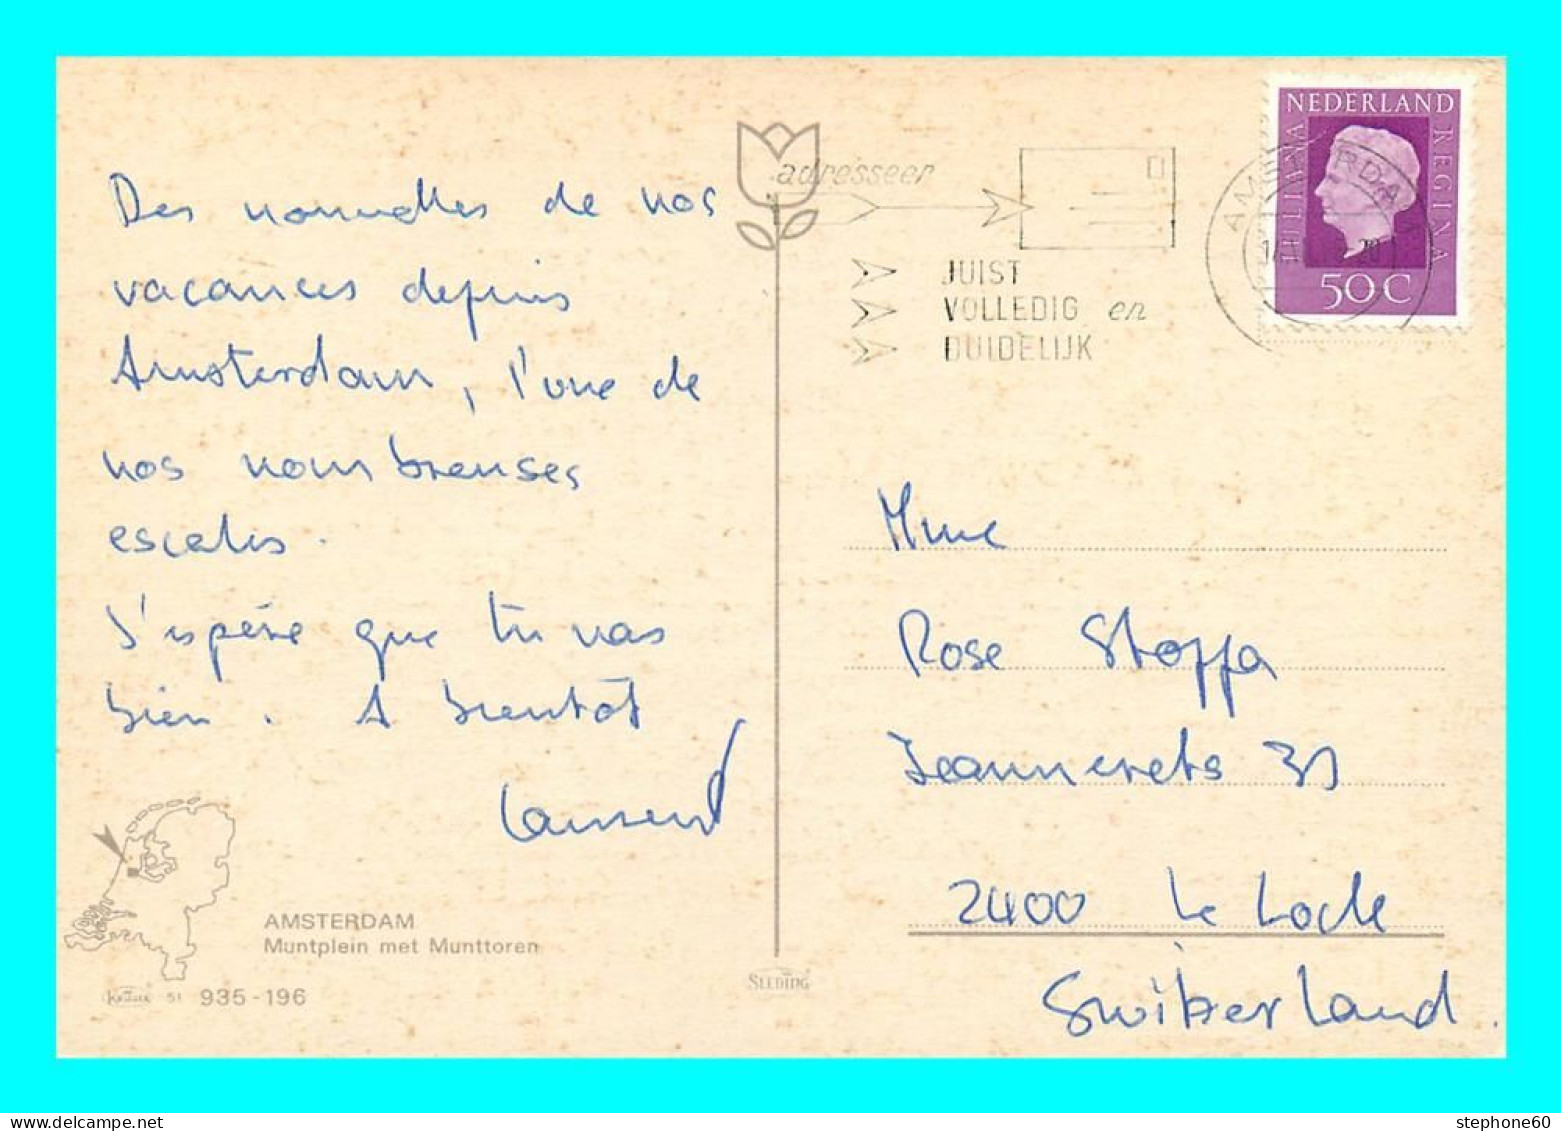 Des nouvelles de nos
vacances depuis
Amsterdam, l'une de
nos nombreuses
escales.
J'espère que tu vas
bien. A bientôt
Laurent
AMSTERDAM
Muntplein met Munttoren
KRÜGER 51 935-196
SLEDING
adresseer
JUIST
VOLLEDIG en
DUIDELIJK
AMSTERDAM
NEDERLAND
JULIANA
REGINA
50C
Mme
Rose Stoppa
Jeannerets 31
2400 Le Locle
Switzerland.
stephone60